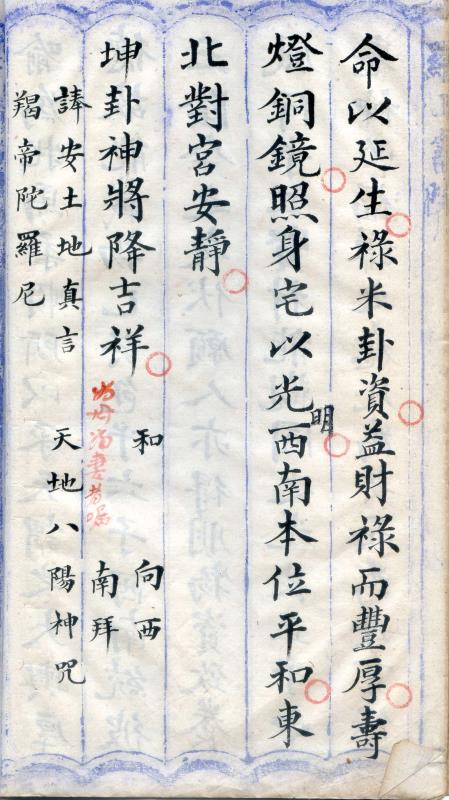 命以延生祿米卦資益財祿而豐厚壽
燈銅鏡照身宅以光明西南本位平和東
北對宮安靜
坤卦神將降吉祥
和
向西
南拜
諱安土地真言
天地八陽神咒
羯帝陀羅尼